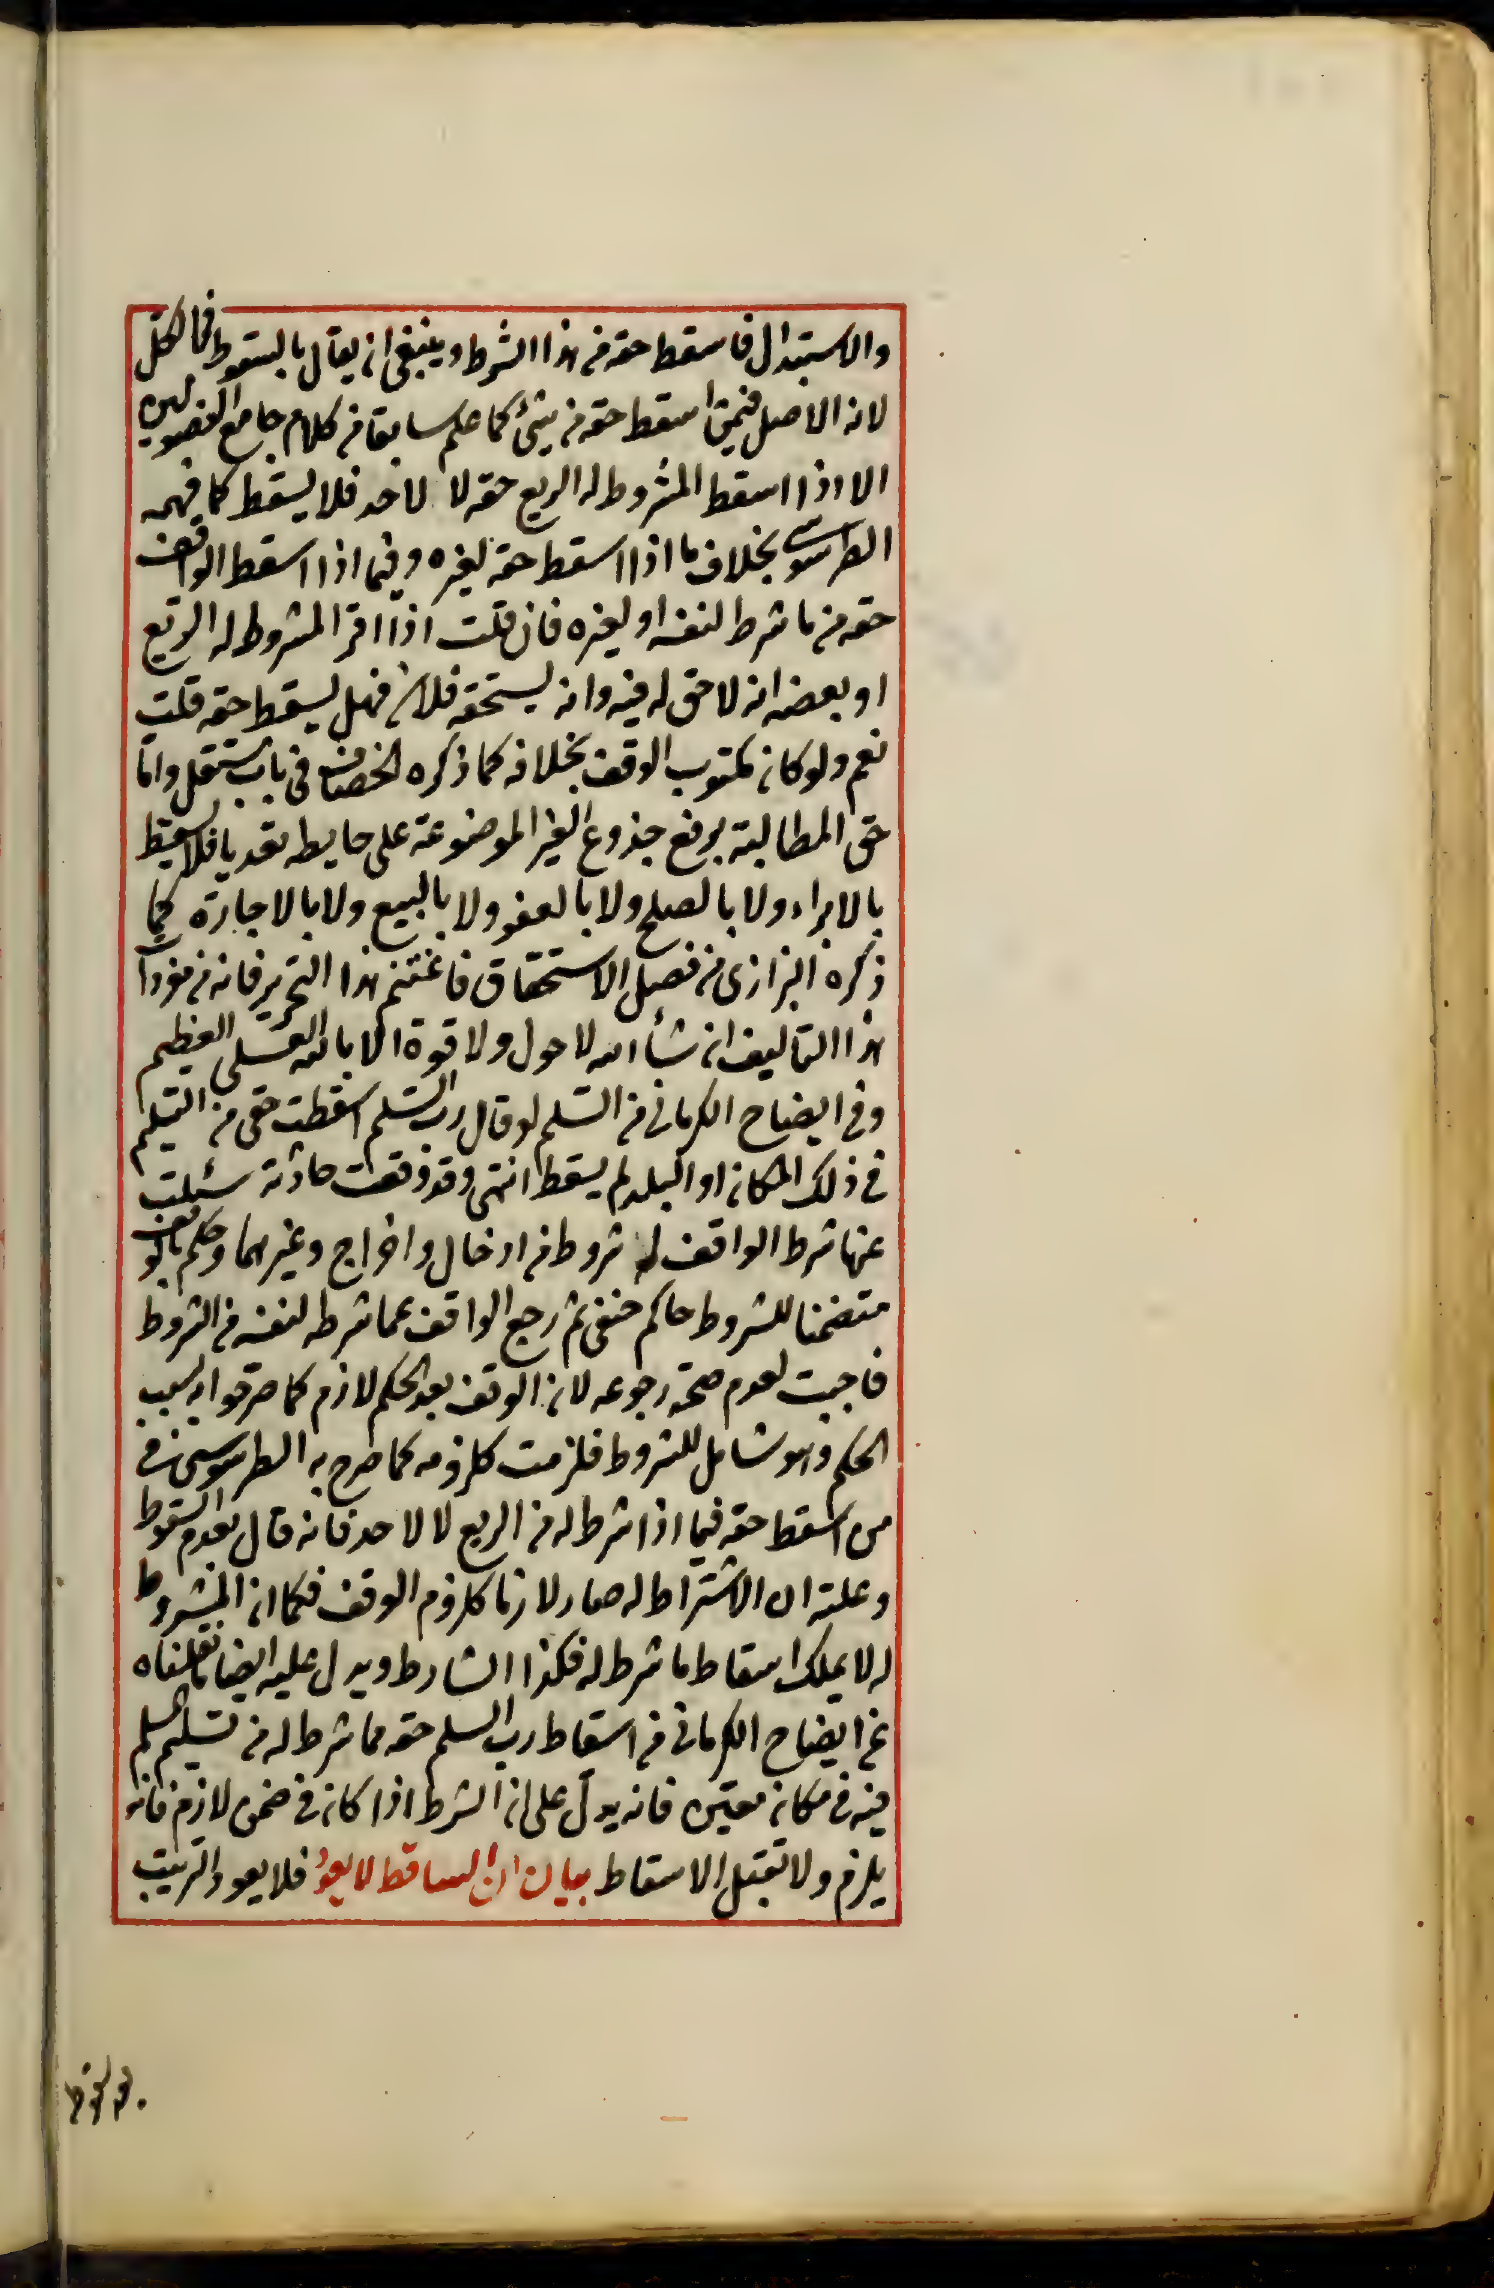 والاستبدال فاسقط حقه من هذا الشرط وينبغي ان يقال بالسقوط في الكل
لان الاصل فيمن اسقط حقه من شئ كما علم سابقا من كلام جامع الفصولين
الا اذا اسقط المشروط له الريع حقه لا لاحد فلا يسقط كما فهمه
الطرسوسي بخلاف ما اذا اسقط حقه لغيره وفيما اذا اسقط الواقف
حقه من ما شرط لنفسه او لغيره فان قلت اذا اقر المشروط له الريع
او بعضه انه لا حق له فيه وانه يستحقه فلان فهل يسقط حقه قلت
نعم ولو كان مكتوب الوقف بخلافه كما ذكره الخصاف في باب مستقل واما
حق المطالبة برفع جذوع الغير الموضوعة على حايطه تعديا فلا يسقط
بالابراء ولا بالصلح ولا بالعفو ولا بالبيع ولا بالاجارة كما
ذكره البزازى من فصل الاستحقاق فاغتنم هذا التحرير فانه من مفردات
هذا التاليف ان شأ الله لا حول ولا قوة الا بالله العلي العظيم
وفي ايضاح الكرماني من السلم لو قال رب السلم اسقطت حقى من التسليم
في ذلك المكان او البلد لم يسقط انتهى وقد وقعت حادثة سئلت
عنها شرط الواقف له شروط من ادخال واخراج وغيرهما وحكم بالوقف
متضمنا للشروط حاكم حنفى ثم رجع الواقف عما شرطه لنفسه من الشروط
فاجبت لعدم صحة رجوعه لان الوقف بعد الحكم لازم كما صرحوا به بسبب
الحكم وهو شامل للشروط فلزمت كلزومه كما صرح به الطرسوسى في
من اسقط حقه فيما اذا شرط له من الريع لا لاحد فانه قال بعدم السقوط
وعلته ان الاشتراط له صار لازما كلزوم الوقف فكما ان المشروط
له لا يملك اسقاط ما شرط له فكذا الشارط ويدل عليه ايضا ما نقلناه
عن ايضاح الكرماني من اسقاط رب السلم حقه مما شرط له من تسليم المسلم
فيه في مكان معين فانه يدل على ان الشرط اذا كان في ضمن لازم فانه
يلزم ولا تقبل الاسقاط بيان ان الساقط لا يعود فلا يعود الترتيب